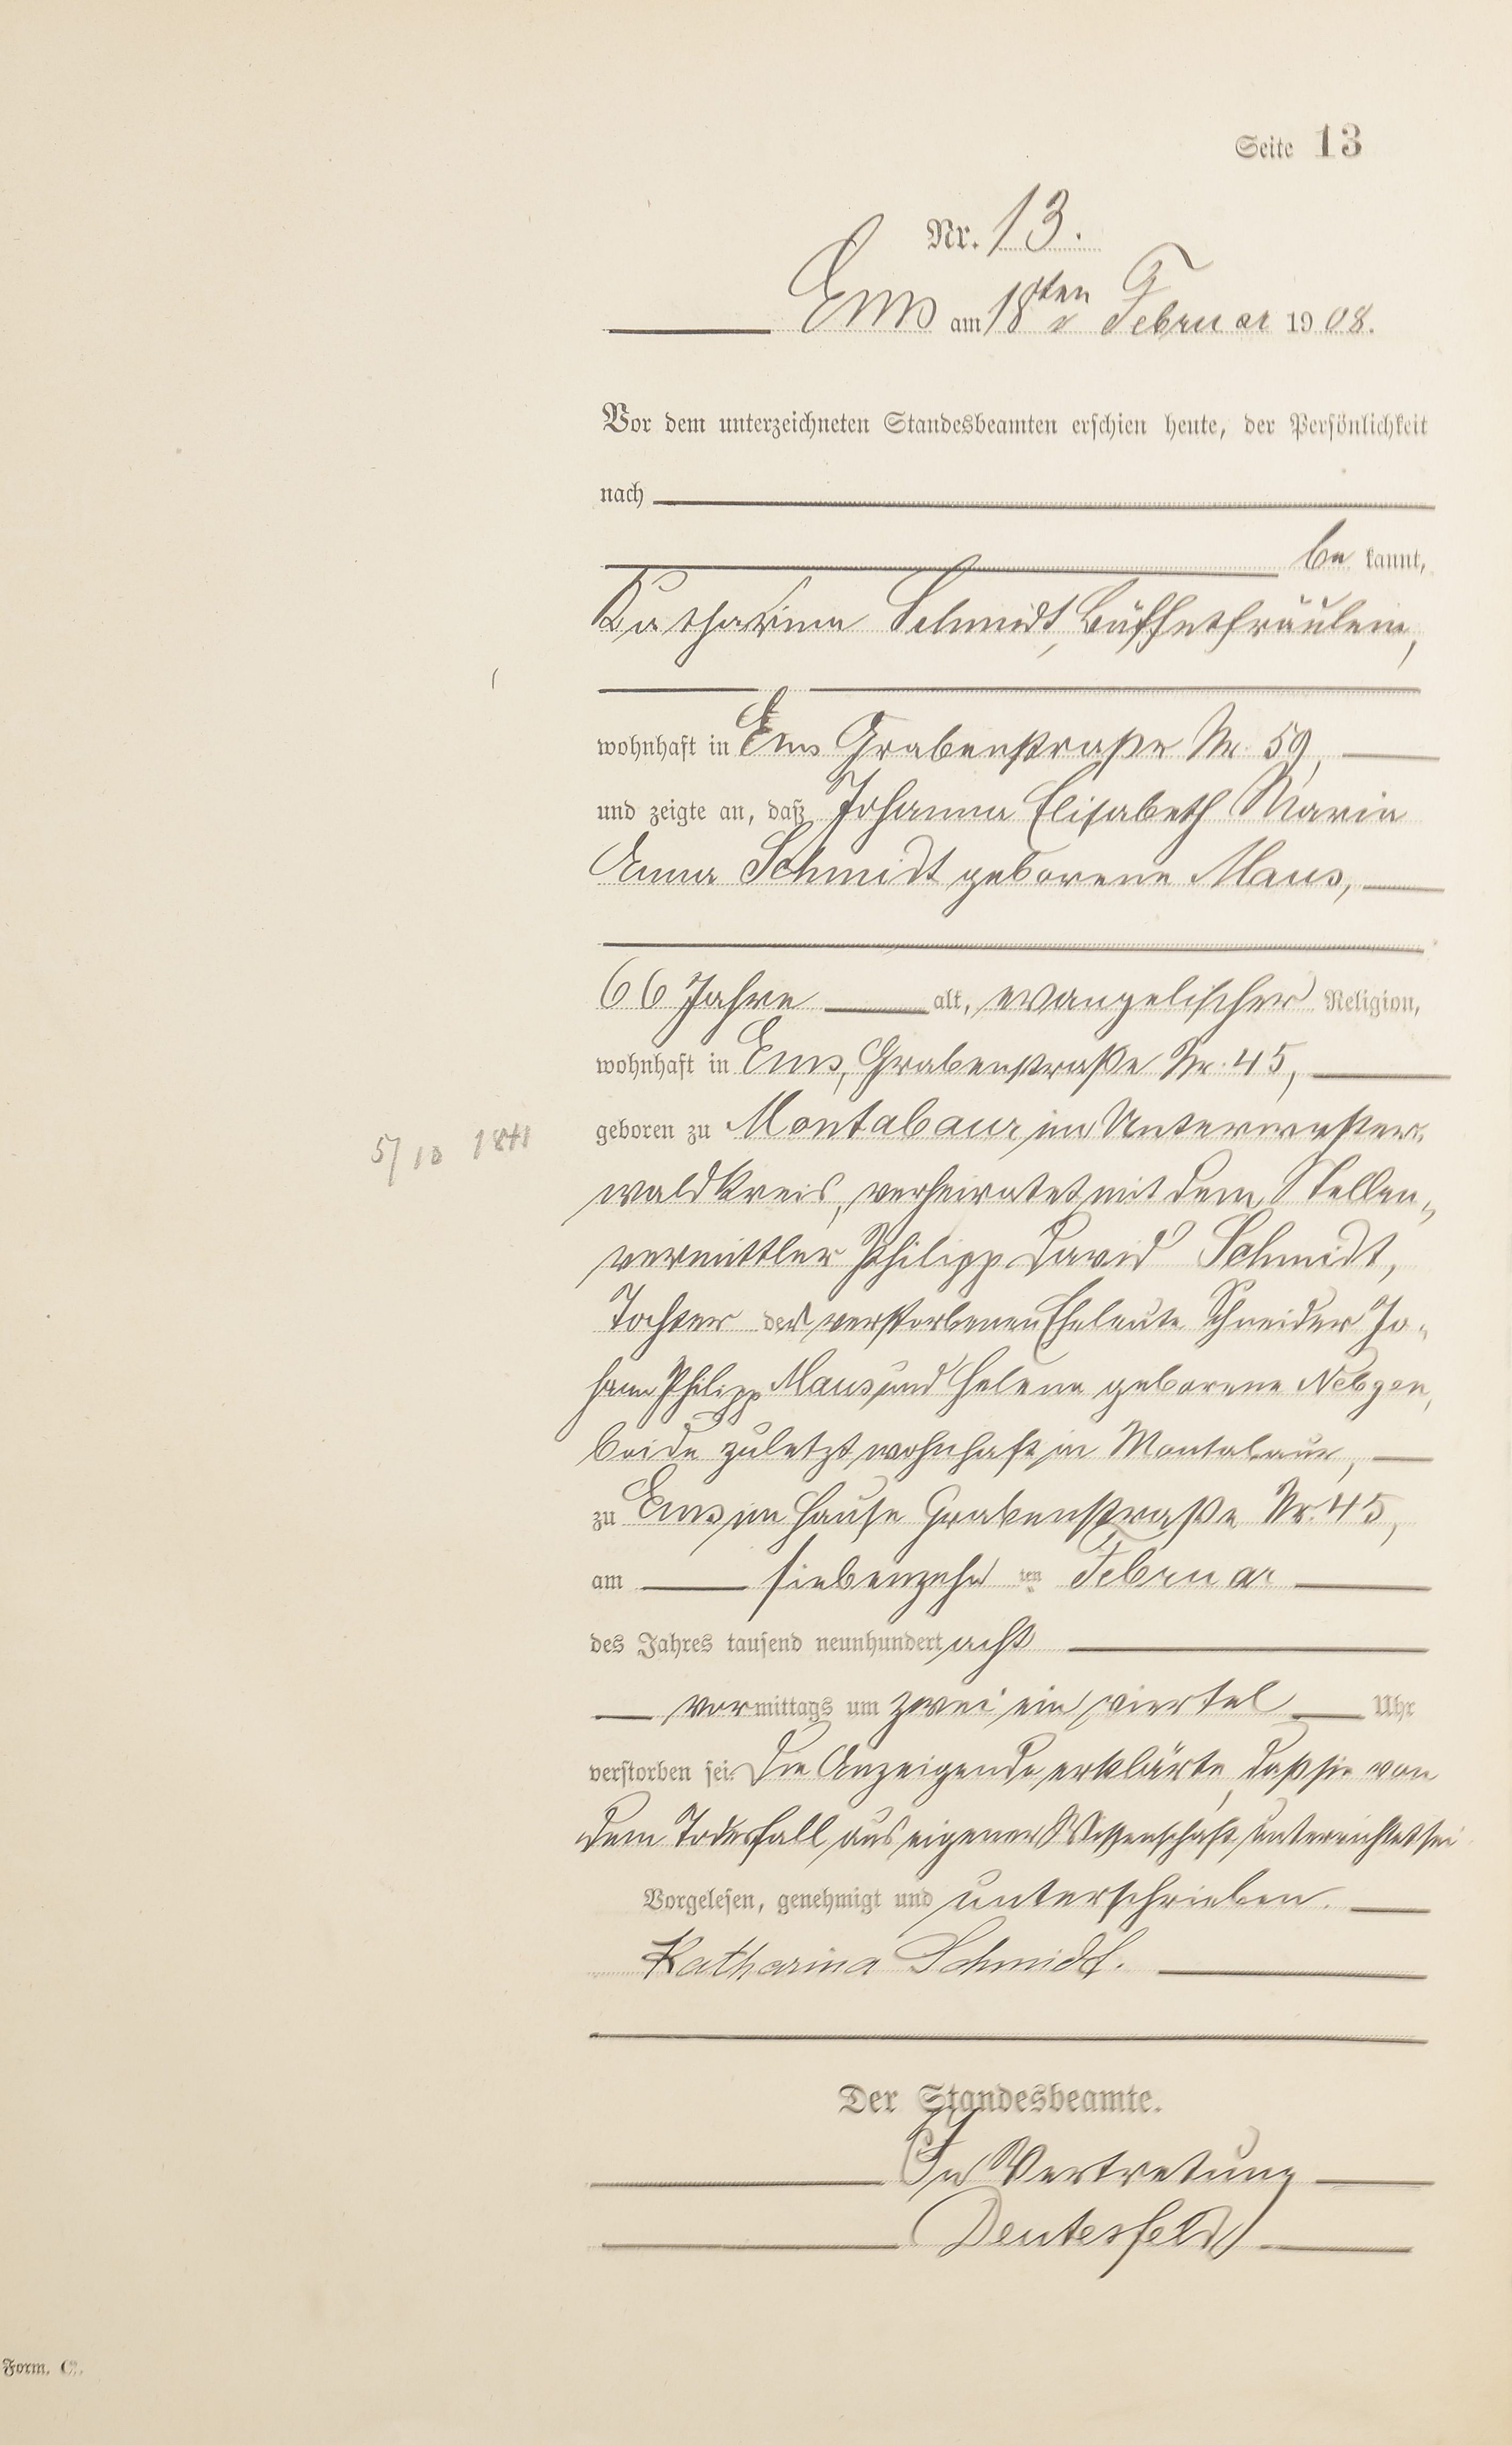 Seite 13
Nr. 13.
Ems am 18ten Februar 1908.
Vor dem unterzeichneten Standesbeamten erschien heute, der Persönlichkeit
nach
be kannt,
Katharina Schmidt, Büffetfräulein,
wohnhaft in Ems Grabenstraße Nr. 59,
und zeigte an, daß Johanna Elisabeth Maria
Anna Schmidt geborene Maus,
66 Jahre alt, evangelischer Religion,
wohnhaft in Ems, Grabenstraße Nr. 45,
geboren zu Montabaur im Unterwester-
5/10 1841
waldkreis, verheiratet mit dem Stellen-
vermittler Philipp David Schmidt,
Tochter der verstorbenen Eheleute Schneider Jo-
hann Philipp Maus und Helene geborene Nebgen,
beide zuletzt wohnhaft in Montabaur,
zu Ems im Hause Grabenstraße Nr. 45,
am siebenzehn ten Februar
des Jahres tausend neunhundert acht
vormittags um zwei ein viertel Uhr
verstorben sei. Die Anzeigende erklärte, daß sie von
dem Todesfall aus eigener Wissenschaft unterrichtet sei
Vorgelesen, genehmigt und unterschrieben.
Katharina Schmidt.
Der Standesbeamte.
In Vertretung
Deutesfeld
Form. C.